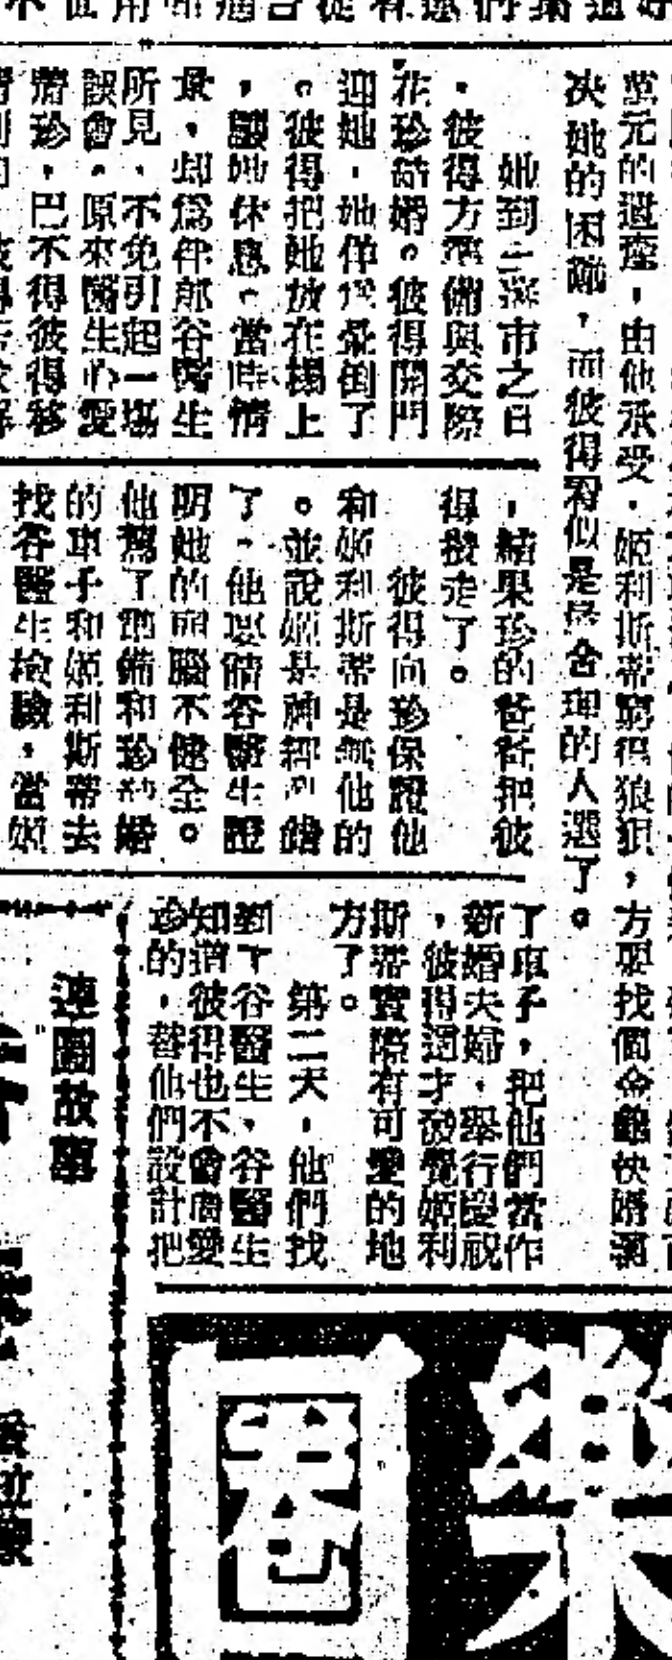 萬元的遺產，由他承受．姬利斯蒂窮得狼狽，方要找個金龜快婿
決她的困難，而彼得看似是最合理的人選了。
她到三藩市之日
．彼得方準備與交際
花珍結婚。彼得開門
迎她．她佯作暈倒了
。彼得把她放在榻上
，讓她休息。當時情
景，却為伴郎谷醫生
所見．不免引起一場
誤會。原來醫生心愛
珍．巴不得彼得移
，結果珍的爸爸把彼
得攆走了。
彼得向珍保證他
和姬利斯蒂是無他的
。並說姬是神經
了。他要請谷醫生證
明她的頭腦不健全。
他駕了準備和珍結婚
的車子和姬利斯蒂去
找谷醫生檢驗，當姬
了車子，把他們當作
新婚夫婦．舉行慶祝
，彼得這才發覺姬利
斯蒂實際有可愛的地
方了。
第二天，他們找
到了谷醫生、谷醫生
知道彼得也不會
珍的，替他們設計把
連圖故事
樂園